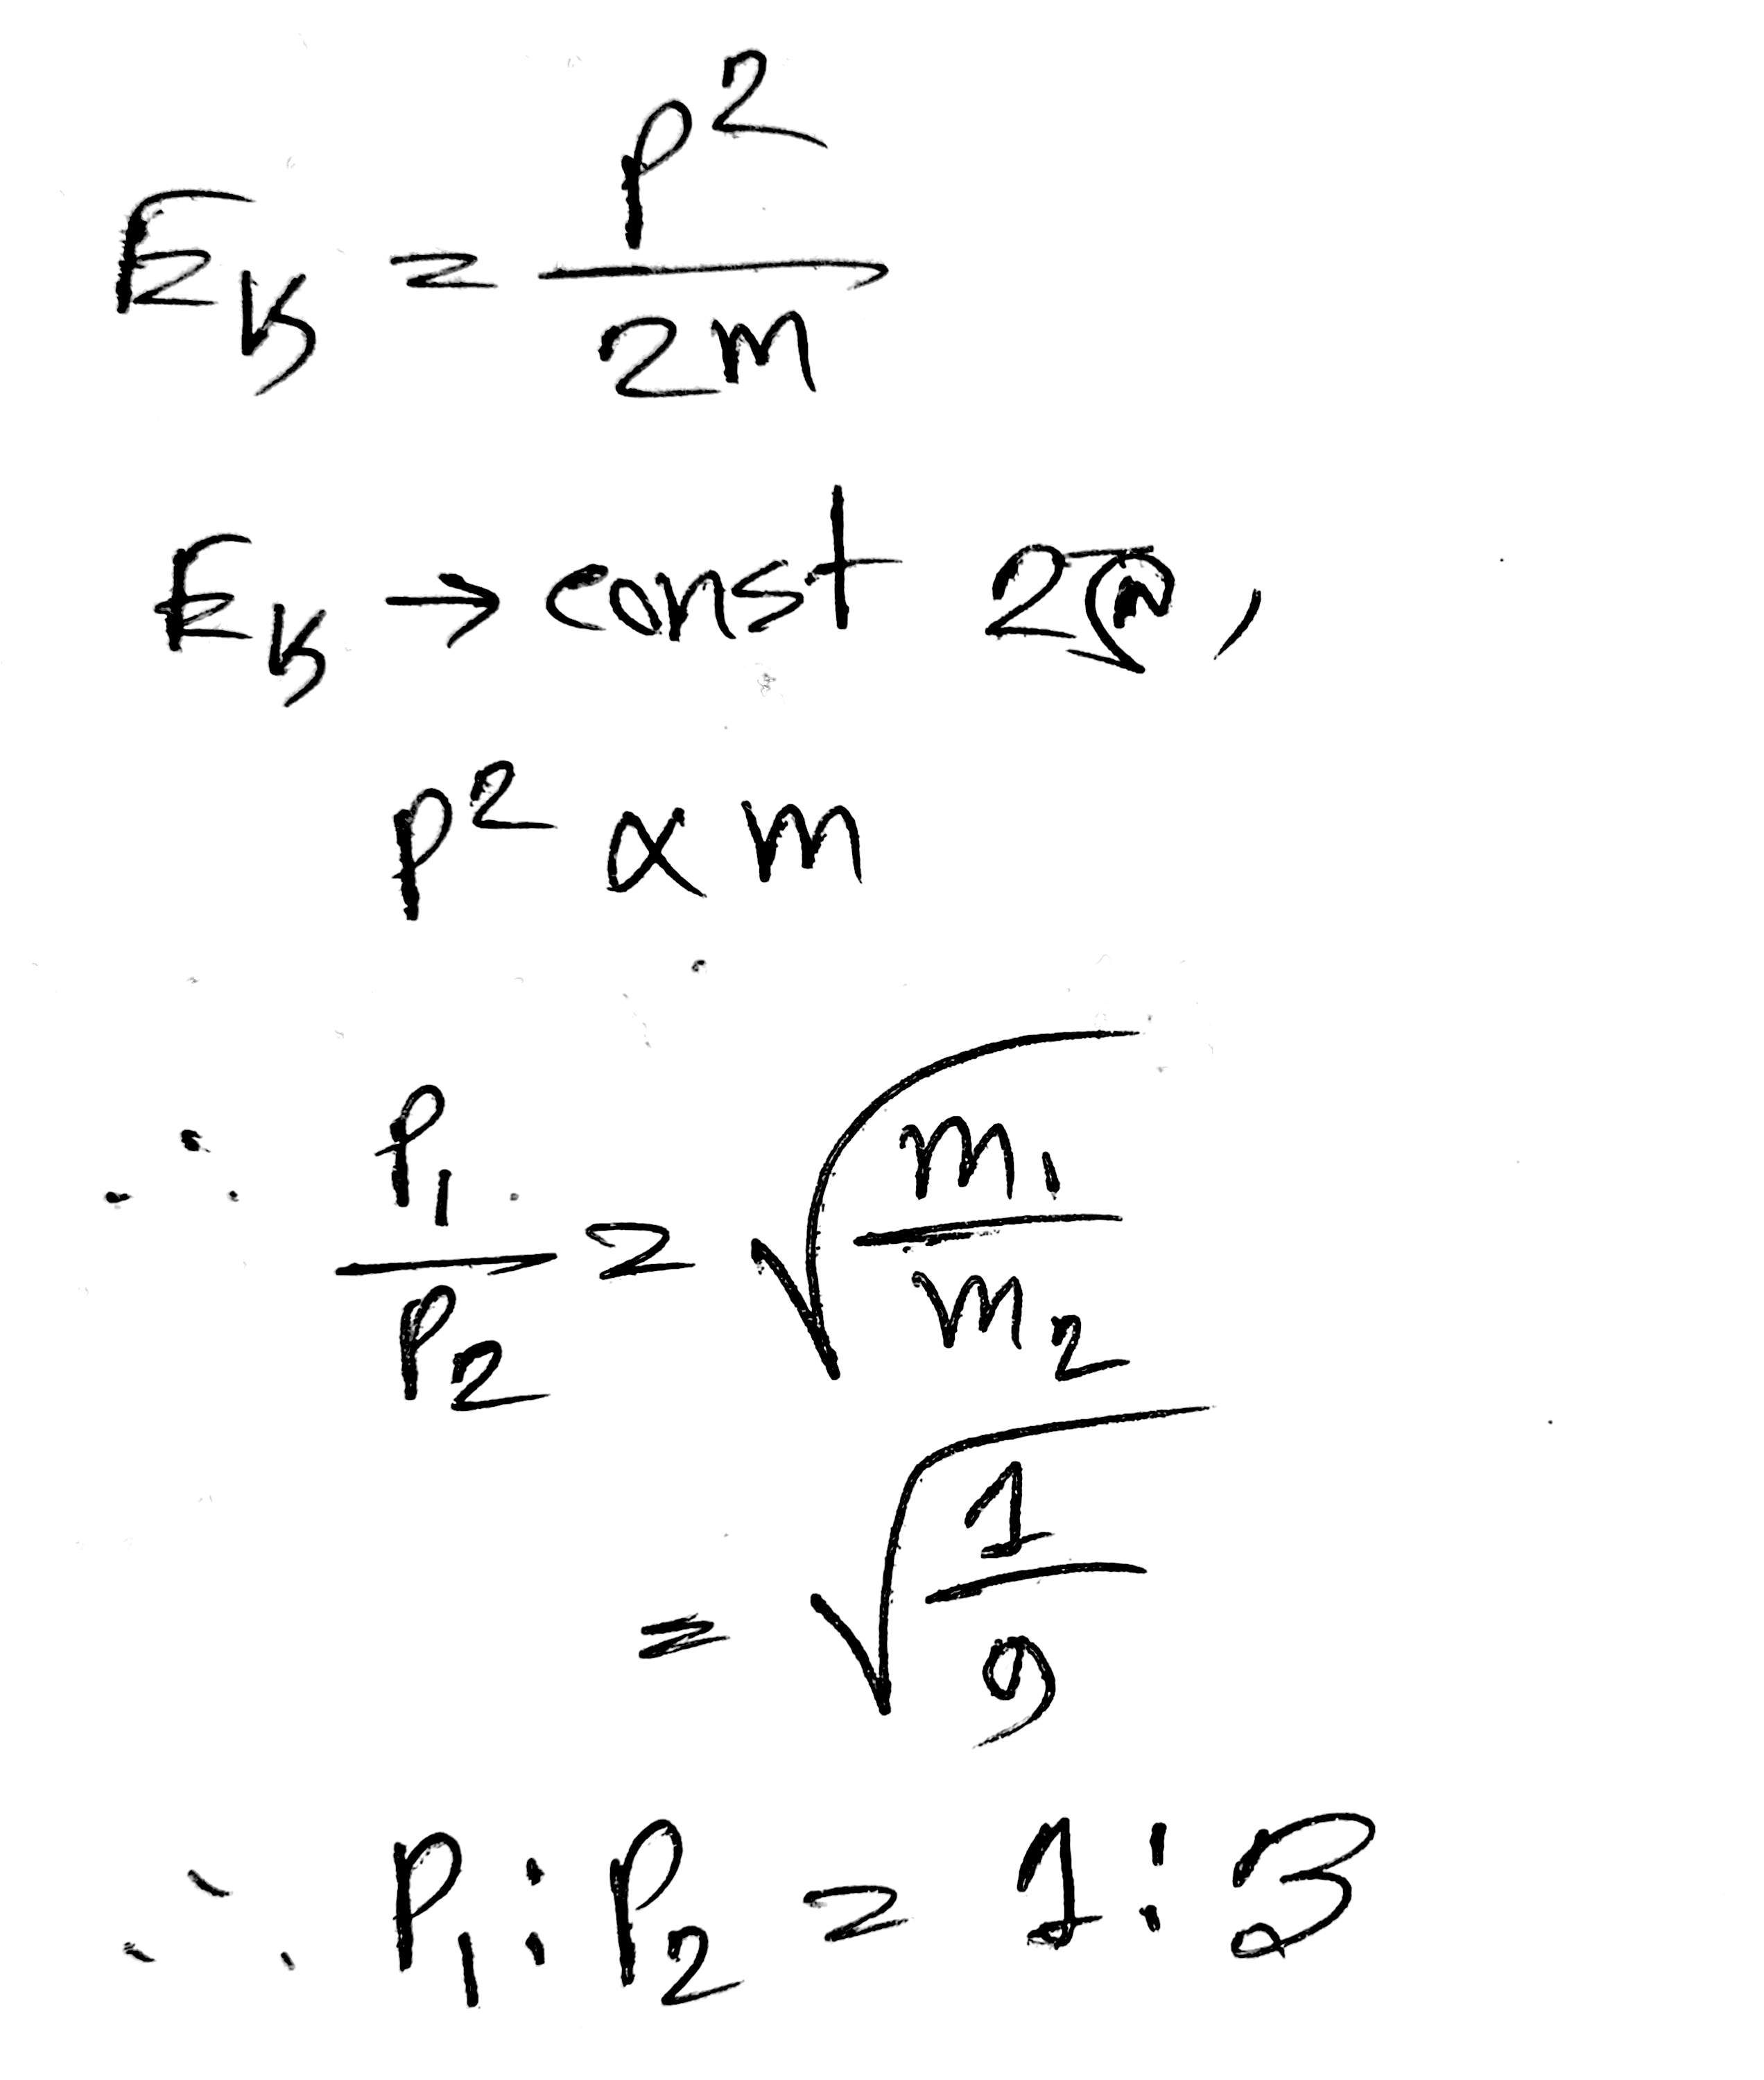 E_k = p²/2m
E_k → const হলে,
p² ∝ m
∴ p₁/p₂ = √(m₁/m₂)
= √(1/9)
∴ P₁ : P₂ = 1 : 3